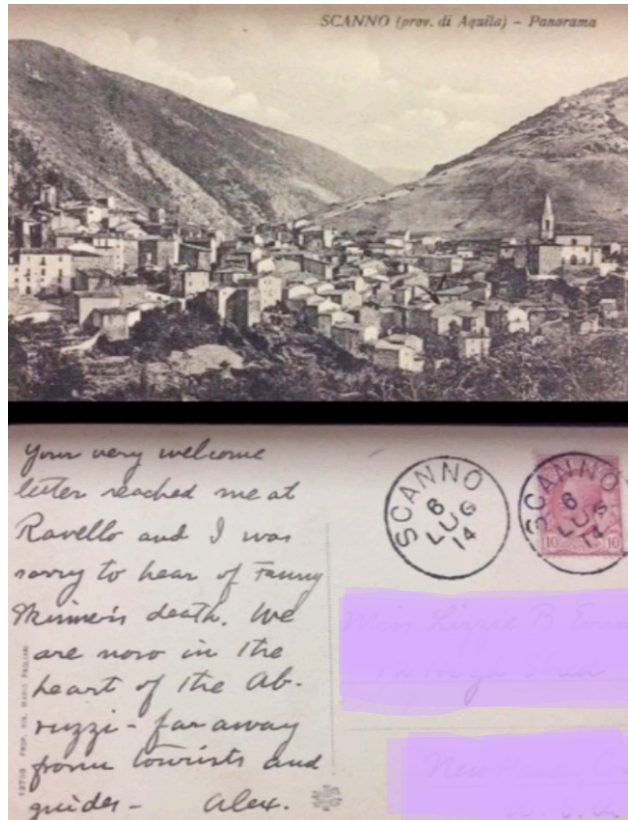 SCANNO (prov. di Aquila) - Panorama
Your very welcome
letter reached me at
Ravello and I was
sorry to hear of Fanny
Skinner's death. We
are now in the
heart of the Ab-
ruzzi - far away
from tourists and
guides - Alex.
SCANNO
6
LUG
14
SCANNO
6
LUG
14
10 10
Miss Lizzie B
High
New